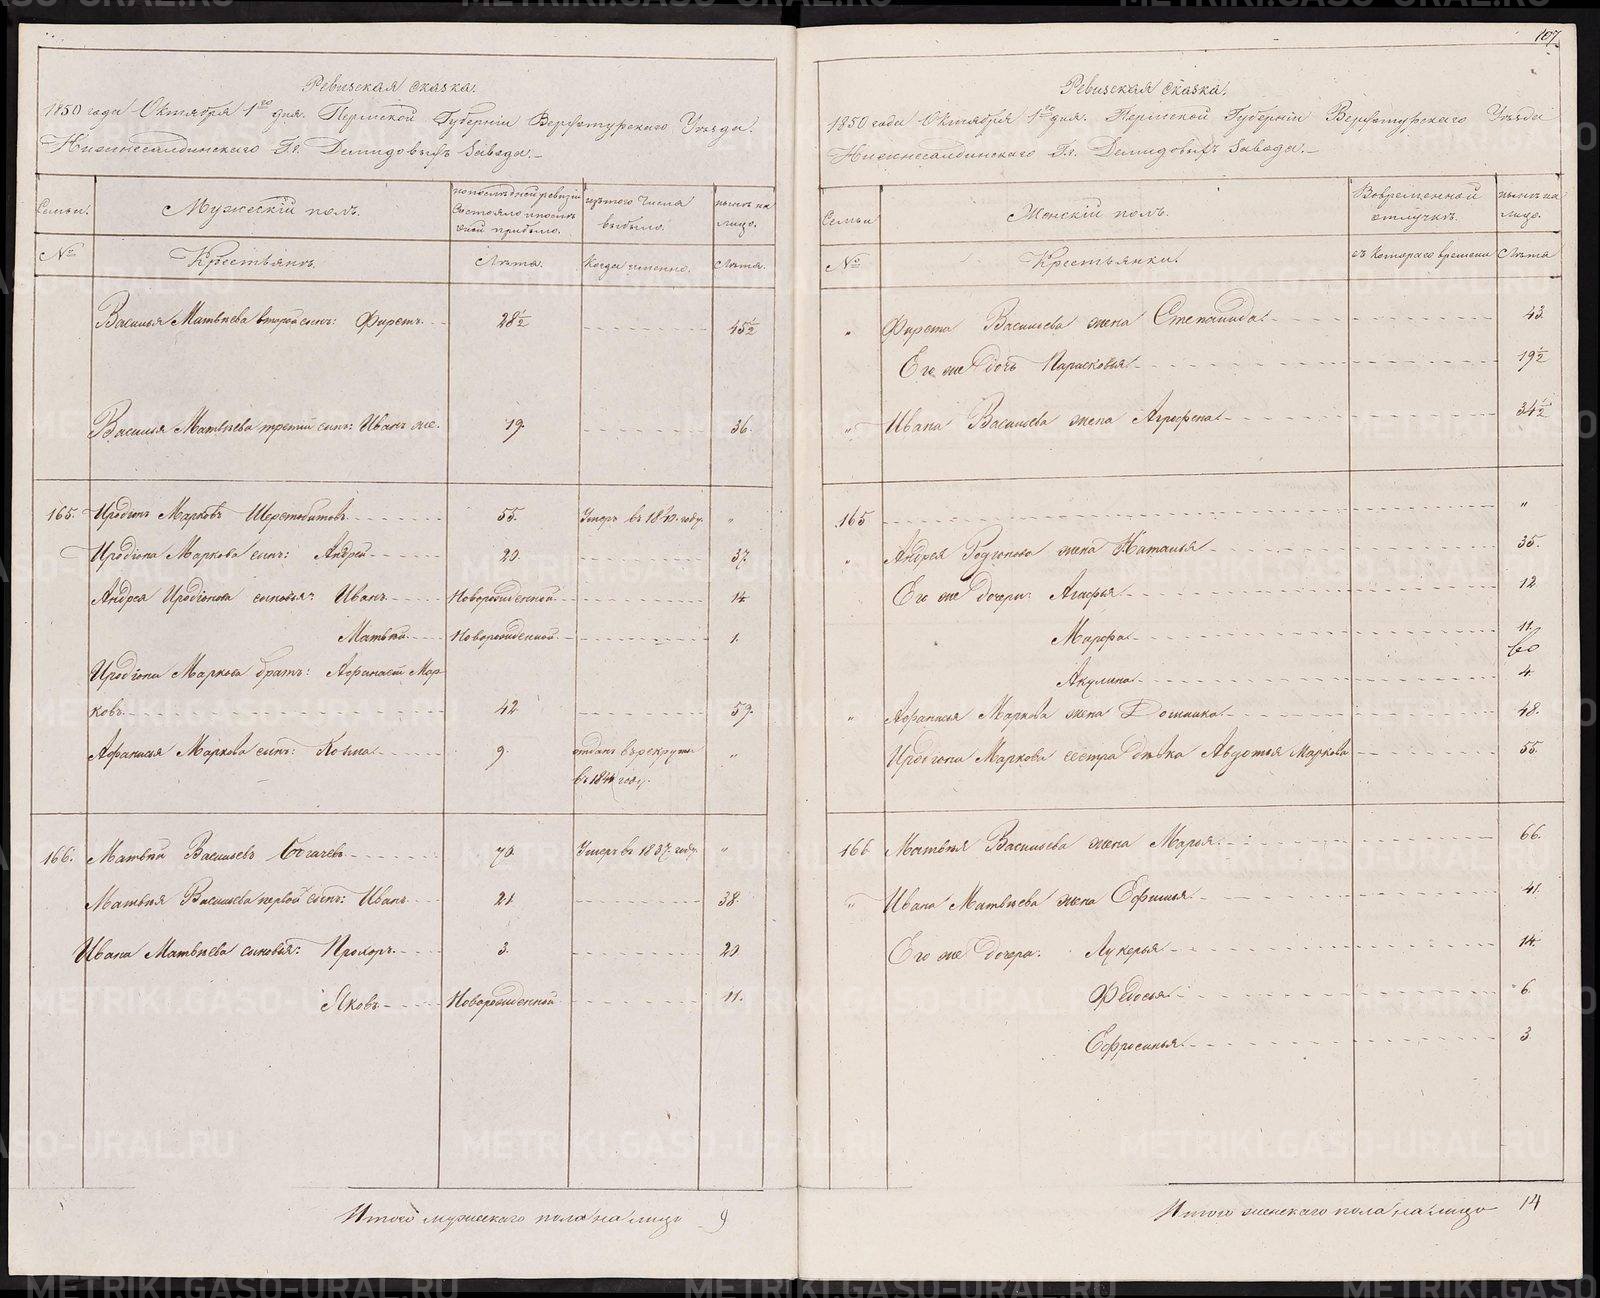 Ревизская сказка.
1850 года Октября 1го дня. Пермской Губернии Верхотурского Уезда.
Нижнесалдинского Гг. Демидовыхъ завода.
Семьи.
Мужескій полъ.
по последней ревизіи состояло и после оной прибыло.
изъ того числа выбыло.
ныне на лицо.
№
Крестьянъ.
Лета.
Когда именно.
Лета.
Василья Матвеева второй сынъ: Фирстъ 28½ 45½
Василья Матвеева третій сынъ: Иванъ же. 19. 36.
165. Иродіонъ Марковъ Шерстобитовъ 55. Умеръ въ 1840. году. "
Иродіона Маркова сынъ: Андрей 20. 37.
Андрея Иродіонова сыновья: Иванъ Новорожденной 14.
Матвей Новорожденной 1.
Иродіона Маркова братъ: Афанасій Мар-
ковъ. 42. 59.
Афанасья Маркова сынъ: Козма 9. отданъ въ рекруты "
въ 1844 году.
166. Матвей Васильевъ Богачевъ 70. Умеръ въ 1837. году. "
Матвея Васильева первой сынъ: Иванъ 21. 38.
Ивана Матвеева сыновья: Прохоръ 3. 20.
Яковъ Новорожденной 11.
Итого мужескаго пола на лицо 9
107.
Ревизская сказка.
1850 года Октября 1го дня. Пермской Губерніи Верхотурскаго Уезда
Нижнесалдинскаго Гг. Демидовыхъ завода.
Семьи
Женскій полъ.
Во временной отлучке.
ныне на лицо.
№
Крестьянки.
съ котораго времени
Лета
" Фирста Васильева жена Степанида. 43.
Его же дочь Парасковья 19½
" Ивана Васильева жена Агрофена 34½
165 "
" Андрея Родіонова жена Наталья 35.
Его же дочери: Агафья 12
Марфа 11.
Акулина 4.
" Афанасья Маркова жена Домника 48.
Иродіона Маркова сестра девка Авдотья Маркова 55.
166 Матвея Васильева жена Марья. 66.
" Ивана Матвеева жена Ефимья 41.
Его же дочери: Лукерья 14.
Федосья 6.
Ефросинья 3
Итого женскаго пола на лицо 14
METRIKI.GASO-URAL.RU